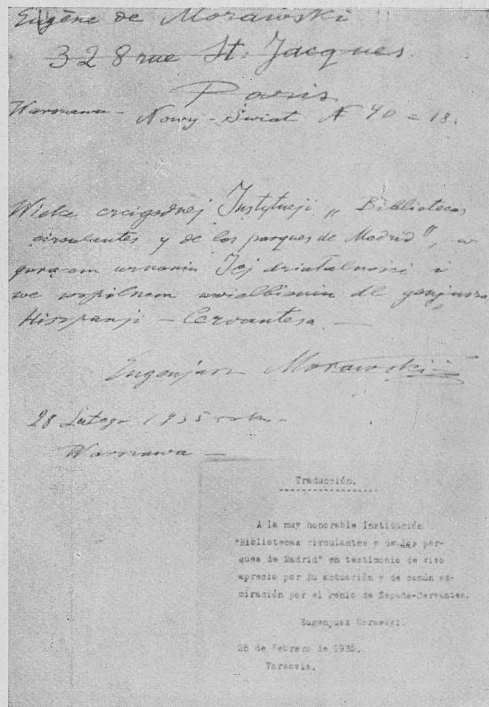 Eugène de Morawski
328 rue St. Jacques
Paris
Warszawa - Nowy-Świat № 40 = 18.
Wielce czcigodnej Instytucji „Bibliotecas
circulantes y de los parques de Madrid", w
gorącem uznaniu Jej działalności i
we wspólnem uwielbieniu dl genjusza
Hiszpanji - Cervantesa. -
Eugenjusz Morawski
28 Lutego 1935 roku -
Warszawa -
Traducción.
A la muy honorable Institución
"Bibliotecas circulantes y de los par-
ques de Madrid" en testimonio de vivo
aprecio por su actuación y de común ad-
miración por el genio de España-Cervantes.
Eugenjusz Morawski.
28 de Febrero de 1935.
Varsovia.